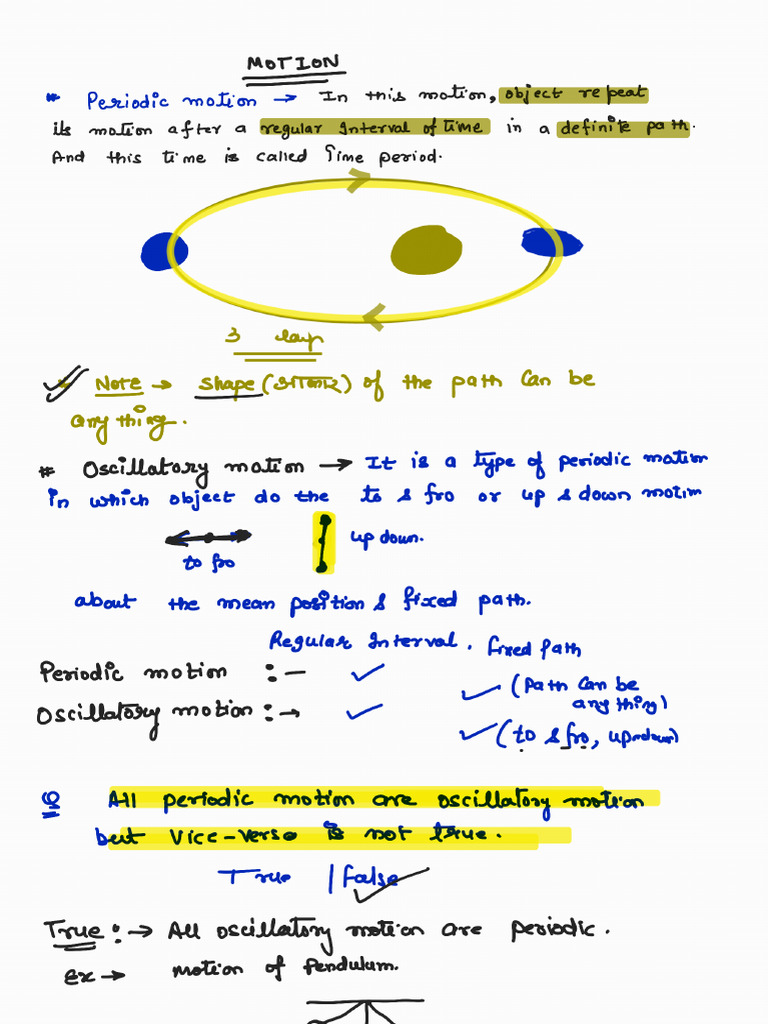 MOTION
# Periodic motion → In this motion, object repeat
its motion after a regular Interval of time in a definite path.
And this time is called Time period.
3
Note → shape (आकार) of the path can be
any thing.
# Oscillatory motion → It is a type of periodic motion
in which object do the to & fro or up & down motion
to fro
up down.
about the mean position & fixed path.
Regular Interval. fixed path
Periodic motion :- ✓ ✓ (path can be
any thing)
Oscillatory motion :→ ✓ ✓ (to & fro, up down)
All periodic motion are oscillatory motion
but vice-verse is not true.
True / false ✓
True :→ All oscillatory motion are periodic.
Ex → motion of pendulum.